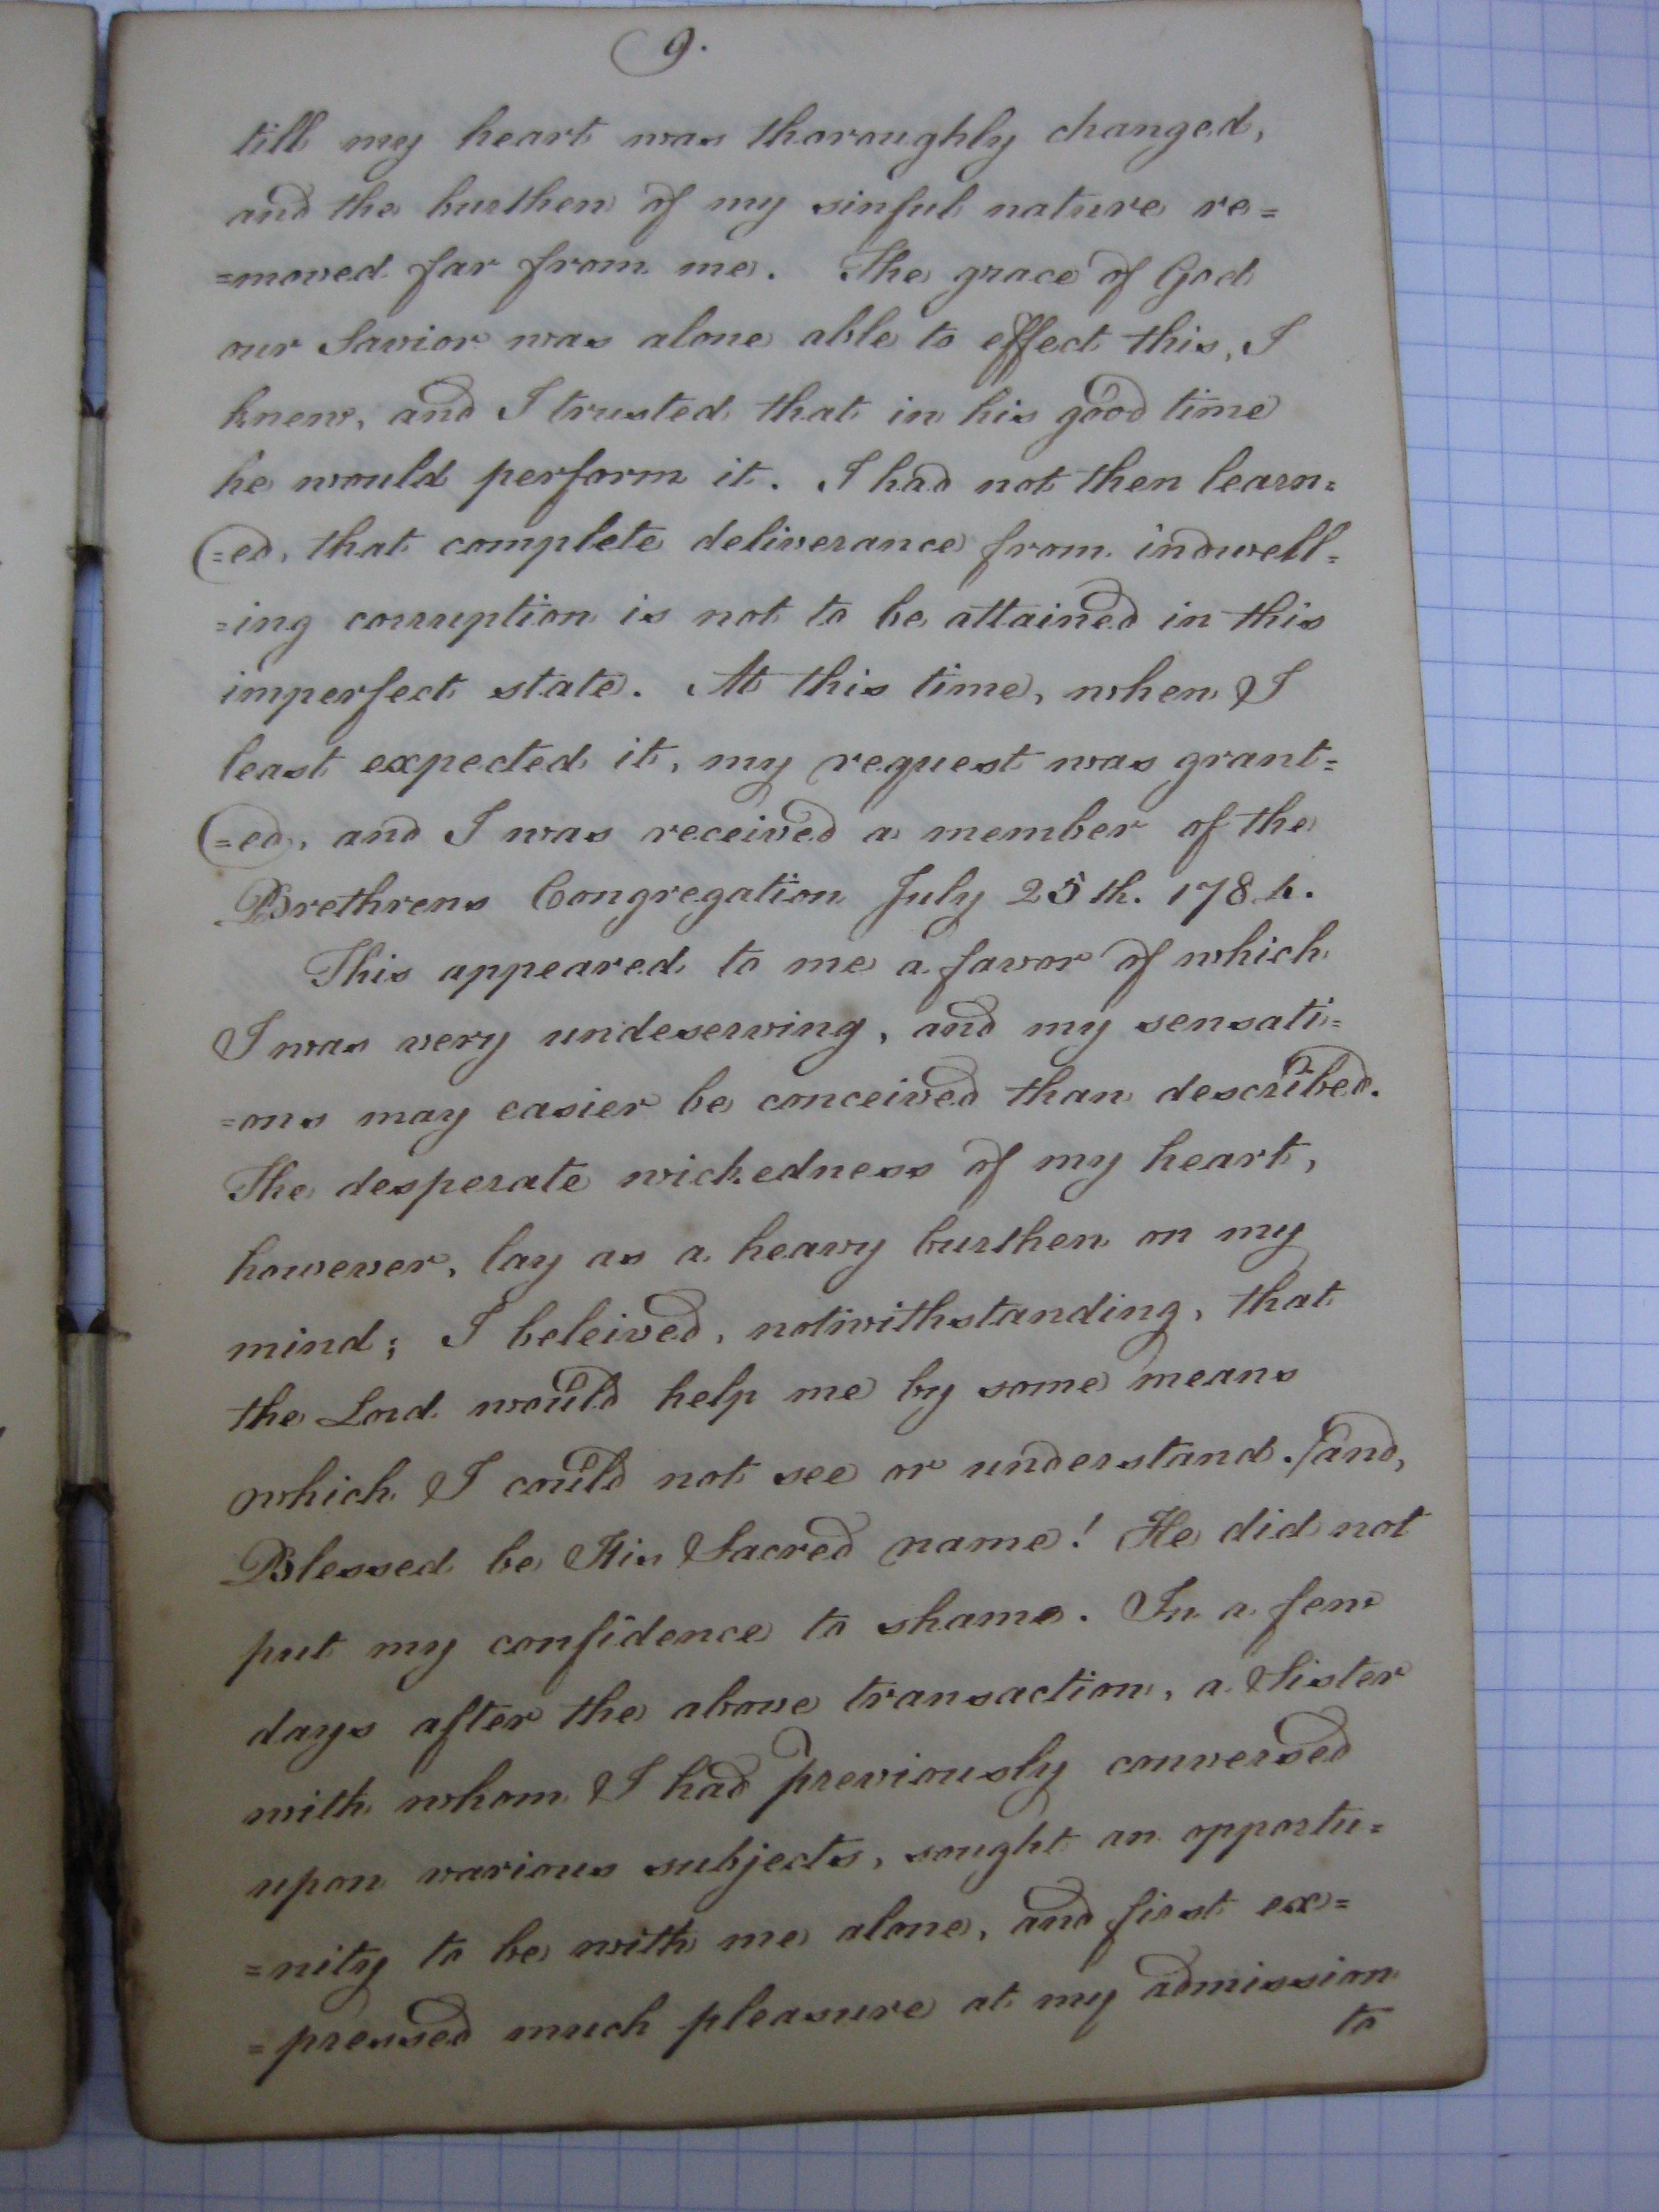 9.
till my heart was thoroughly changed,
and the burthen of my sinful nature re=
=moved far from me. The grace of God
our Savior was alone able to effect this, I
knew, and I trusted that in his good time
he would perform it. I had not then learn=
=ed, that complete deliverance from indwell=
=ing corruption is not to be attained in this
imperfect state. At this time, when I
least expected it, my request was grant=
=ed, and I was received a member of the
Brethrens Congregation July 25th. 1784.
This appeared to me a favor of which
I was very undeserving, and my sensati=
=ons may easier be conceived than described.
The desperate wickedness of my heart,
however, lay as a heavy burthen on my
mind; I beleived, notwithstanding, that
the Lord would help me by some means
which I could not see or understand./and,
Blessed be His Sacred name! He did not
put my confidence to shame. In a few
days after the above transaction, a Sister
with whom I had previously conversed
upon various subjects, sought an opportu=
=nity to be with me alone, and first ex=
=pressed much pleasure at my admission
to